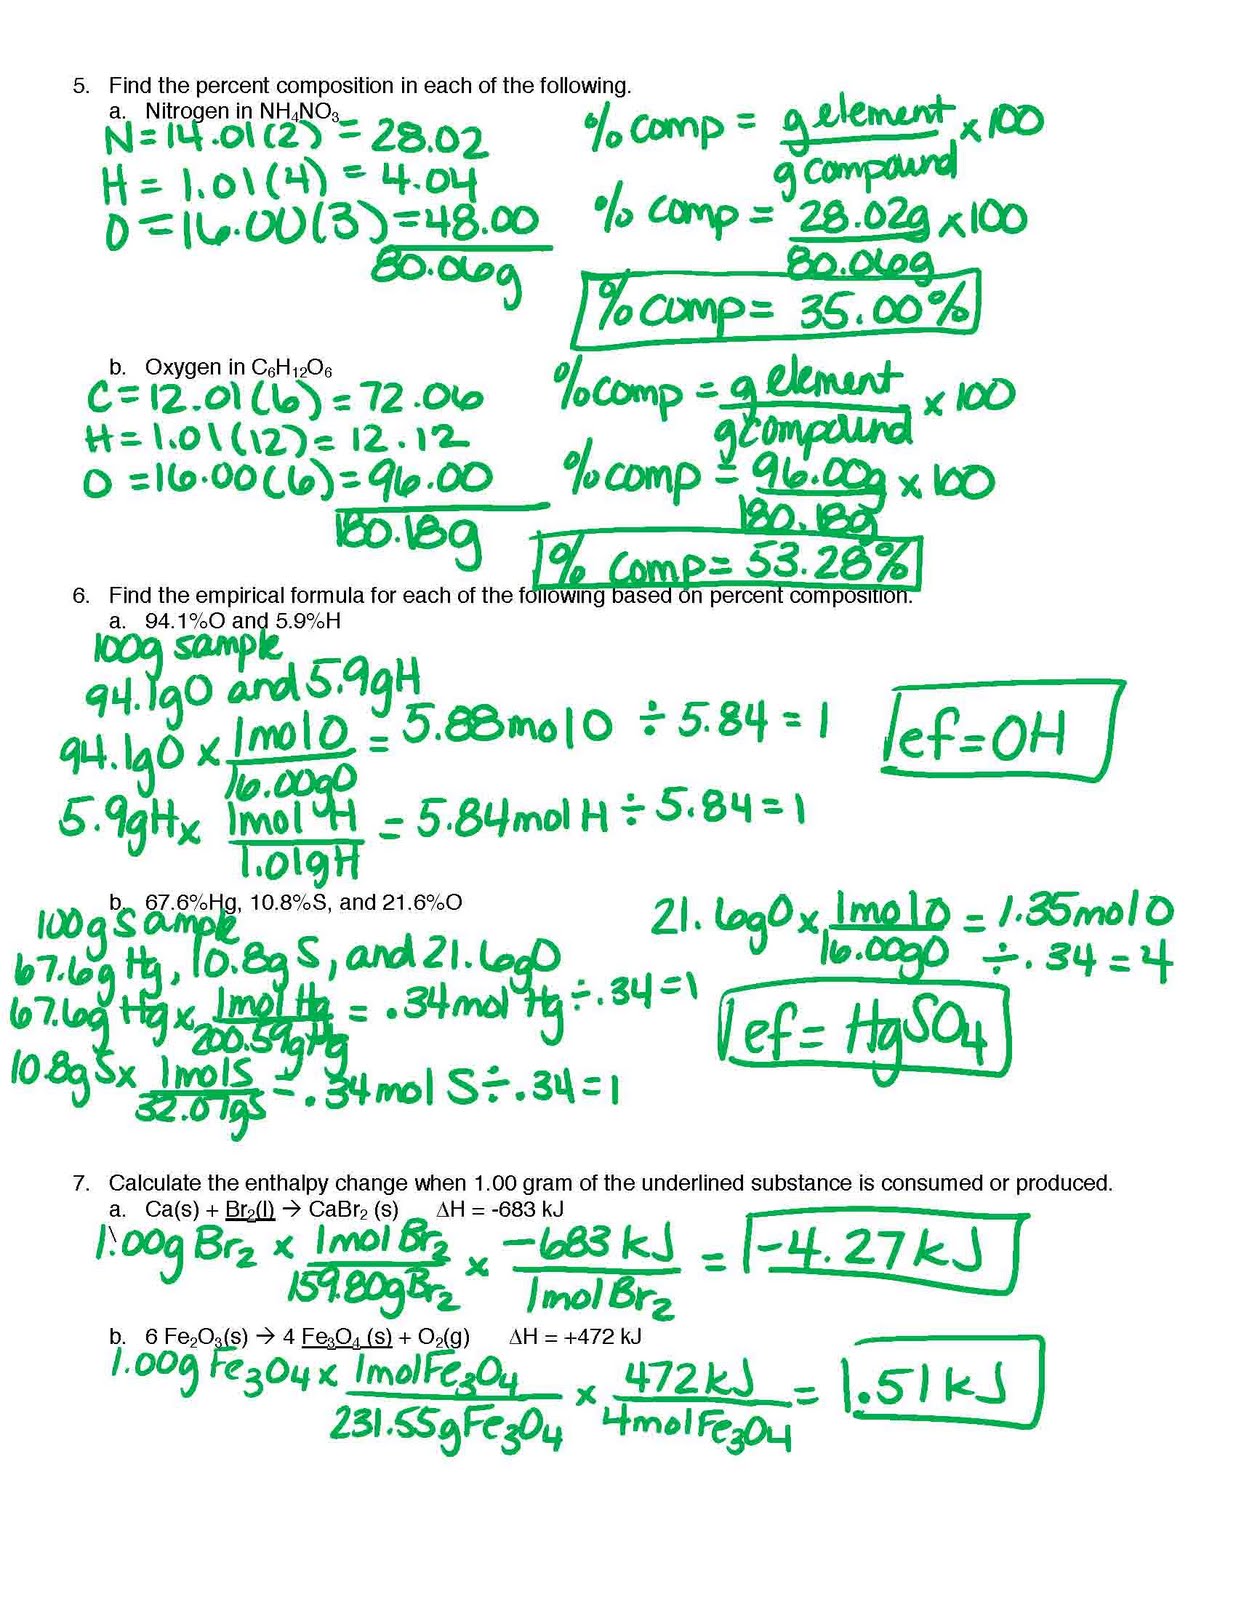 5. Find the percent composition in each of the following.
a. Nitrogen in NH₄NO₃
N = 14.01(2) = 28.02
H = 1.01(4) = 4.04
O = 16.00(3) = 48.00
80.06g
% comp = g element / g compound x 100
% comp = 28.02g / 80.06g x 100
% comp = 35.00%
b. Oxygen in C₆H₁₂O₆
C = 12.01(6) = 72.06
H = 1.01(12) = 12.12
O = 16.00(6) = 96.00
180.18g
% comp = g element / g compound x 100
% comp = 96.00g / 180.18g x 100
% comp = 53.28%
6. Find the empirical formula for each of the following based on percent composition.
a. 94.1%O and 5.9%H
100g sample
94.1gO and 5.9gH
94.1gO x 1mol O / 16.00gO = 5.88mol O ÷ 5.84 = 1
5.9gH x 1mol H / 1.01gH = 5.84mol H ÷ 5.84 = 1
ef = OH
b. 67.6%Hg, 10.8%S, and 21.6%O
100g sample
67.6g Hg, 10.8g S, and 21.6gO
67.6g Hg x 1mol Hg / 200.59g Hg = .34mol Hg ÷ .34 = 1
10.8g S x 1mol S / 32.07gS = .34mol S ÷ .34 = 1
21.6gO x 1mol O / 16.00gO = 1.35mol O
÷ .34 = 4
ef = HgSO₄
7. Calculate the enthalpy change when 1.00 gram of the underlined substance is consumed or produced.
a. Ca(s) + Br₂(l) → CaBr₂ (s) ΔH = -683 kJ
1.00g Br₂ x 1mol Br₂ / 159.80g Br₂ x -683 kJ / 1mol Br₂ = -4.27kJ
b. 6 Fe₂O₃(s) → 4 Fe₃O₄ (s) + O₂(g) ΔH = +472 kJ
1.00g Fe₃O₄ x 1mol Fe₃O₄ / 231.55g Fe₃O₄ x 472kJ / 4mol Fe₃O₄ = 1.51kJ